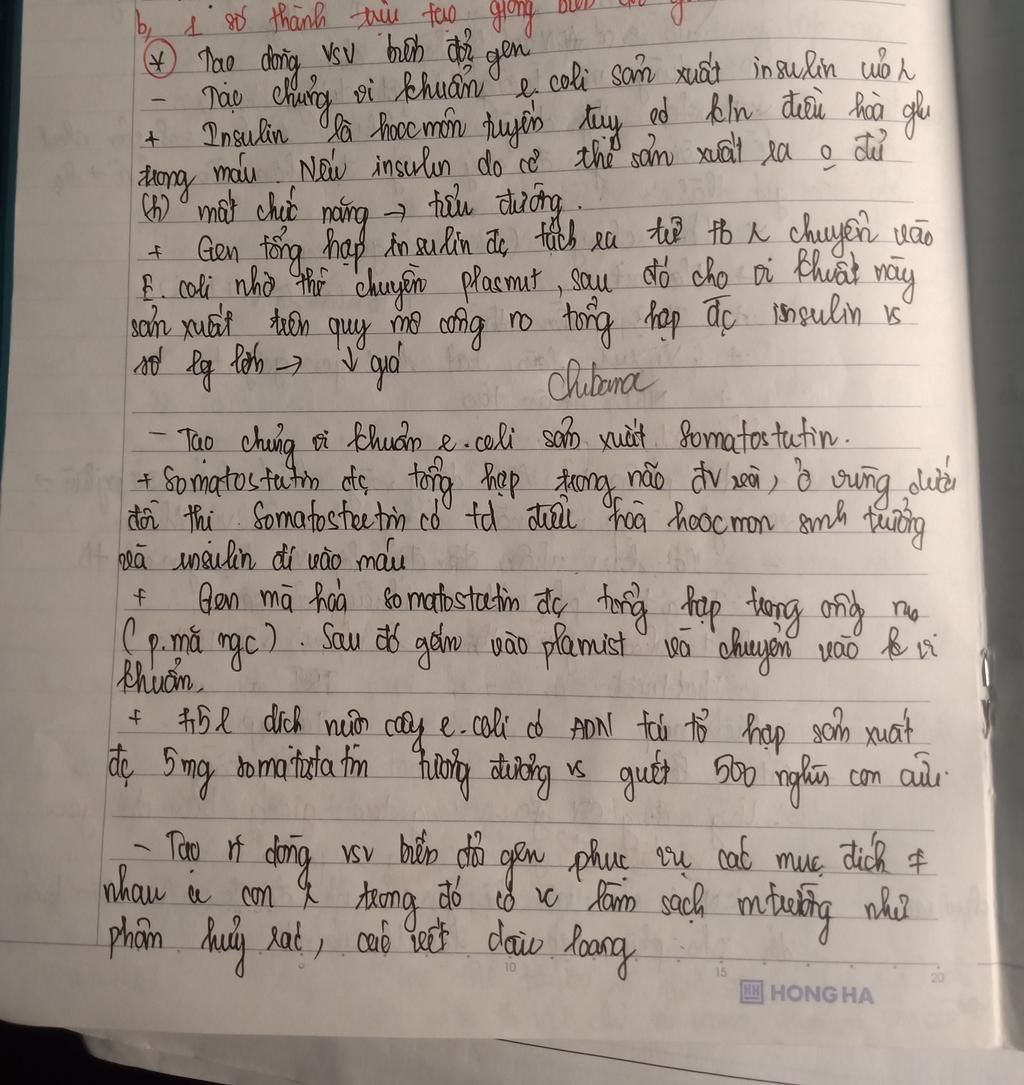 b, 1 số thành tựu tạo giống biến
* Tạo dòng vsv biến đổi gen
- Tạo chủng vi khuẩn e.coli sản xuất insulin của
+ Insulin là hoocmôn tuyến tụy có điều hoà glu
trong máu. Nếu insulin do cơ thể sản xuất ra o đủ
(h) mất chức năng → tiểu đường.
+ Gen tổng hợp insulin đc tách ra từ tb chuyển vào
E.coli nhờ thể chuyền plasmit, sau đó cho vi khuất này
sản xuất trên quy mô công no tổng hợp đc insulin vs
số lg lớn → ↓ giá
Chibana
- Tạo chủng vi khuẩn e.coli sản xuất Somatostatin.
+ Somatostatin đc tổng hợp trong não đv và, ở vùng dưới
đồi thi. Somatostatin có td điều hoà hoocmon sinh trưởng
và insulin đi vào máu
+ Gen mã hoá somatostatin đc tổng hợp trong ống no
(p.mã ngc). Sau đó gắn vào plamist và chuyển vào vi
khuẩn.
+ 7,5l dịch nuôi cấy e.coli có ADN tái tổ hợp sản xuất
đc 5mg somatostatin tương đương vs 500 nghìn con cừu.
- Tạo dòng vsv biến đổi gen phục vụ các mục đích ≠
nhau con trong đó có vc làm sạch mtrường như
phân huỷ rác, các vết dầu loang
10 15 20
HH HONG HA